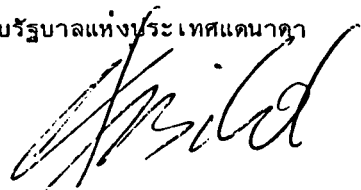 บรัฐบาลแห่งประเทศแคนาดา